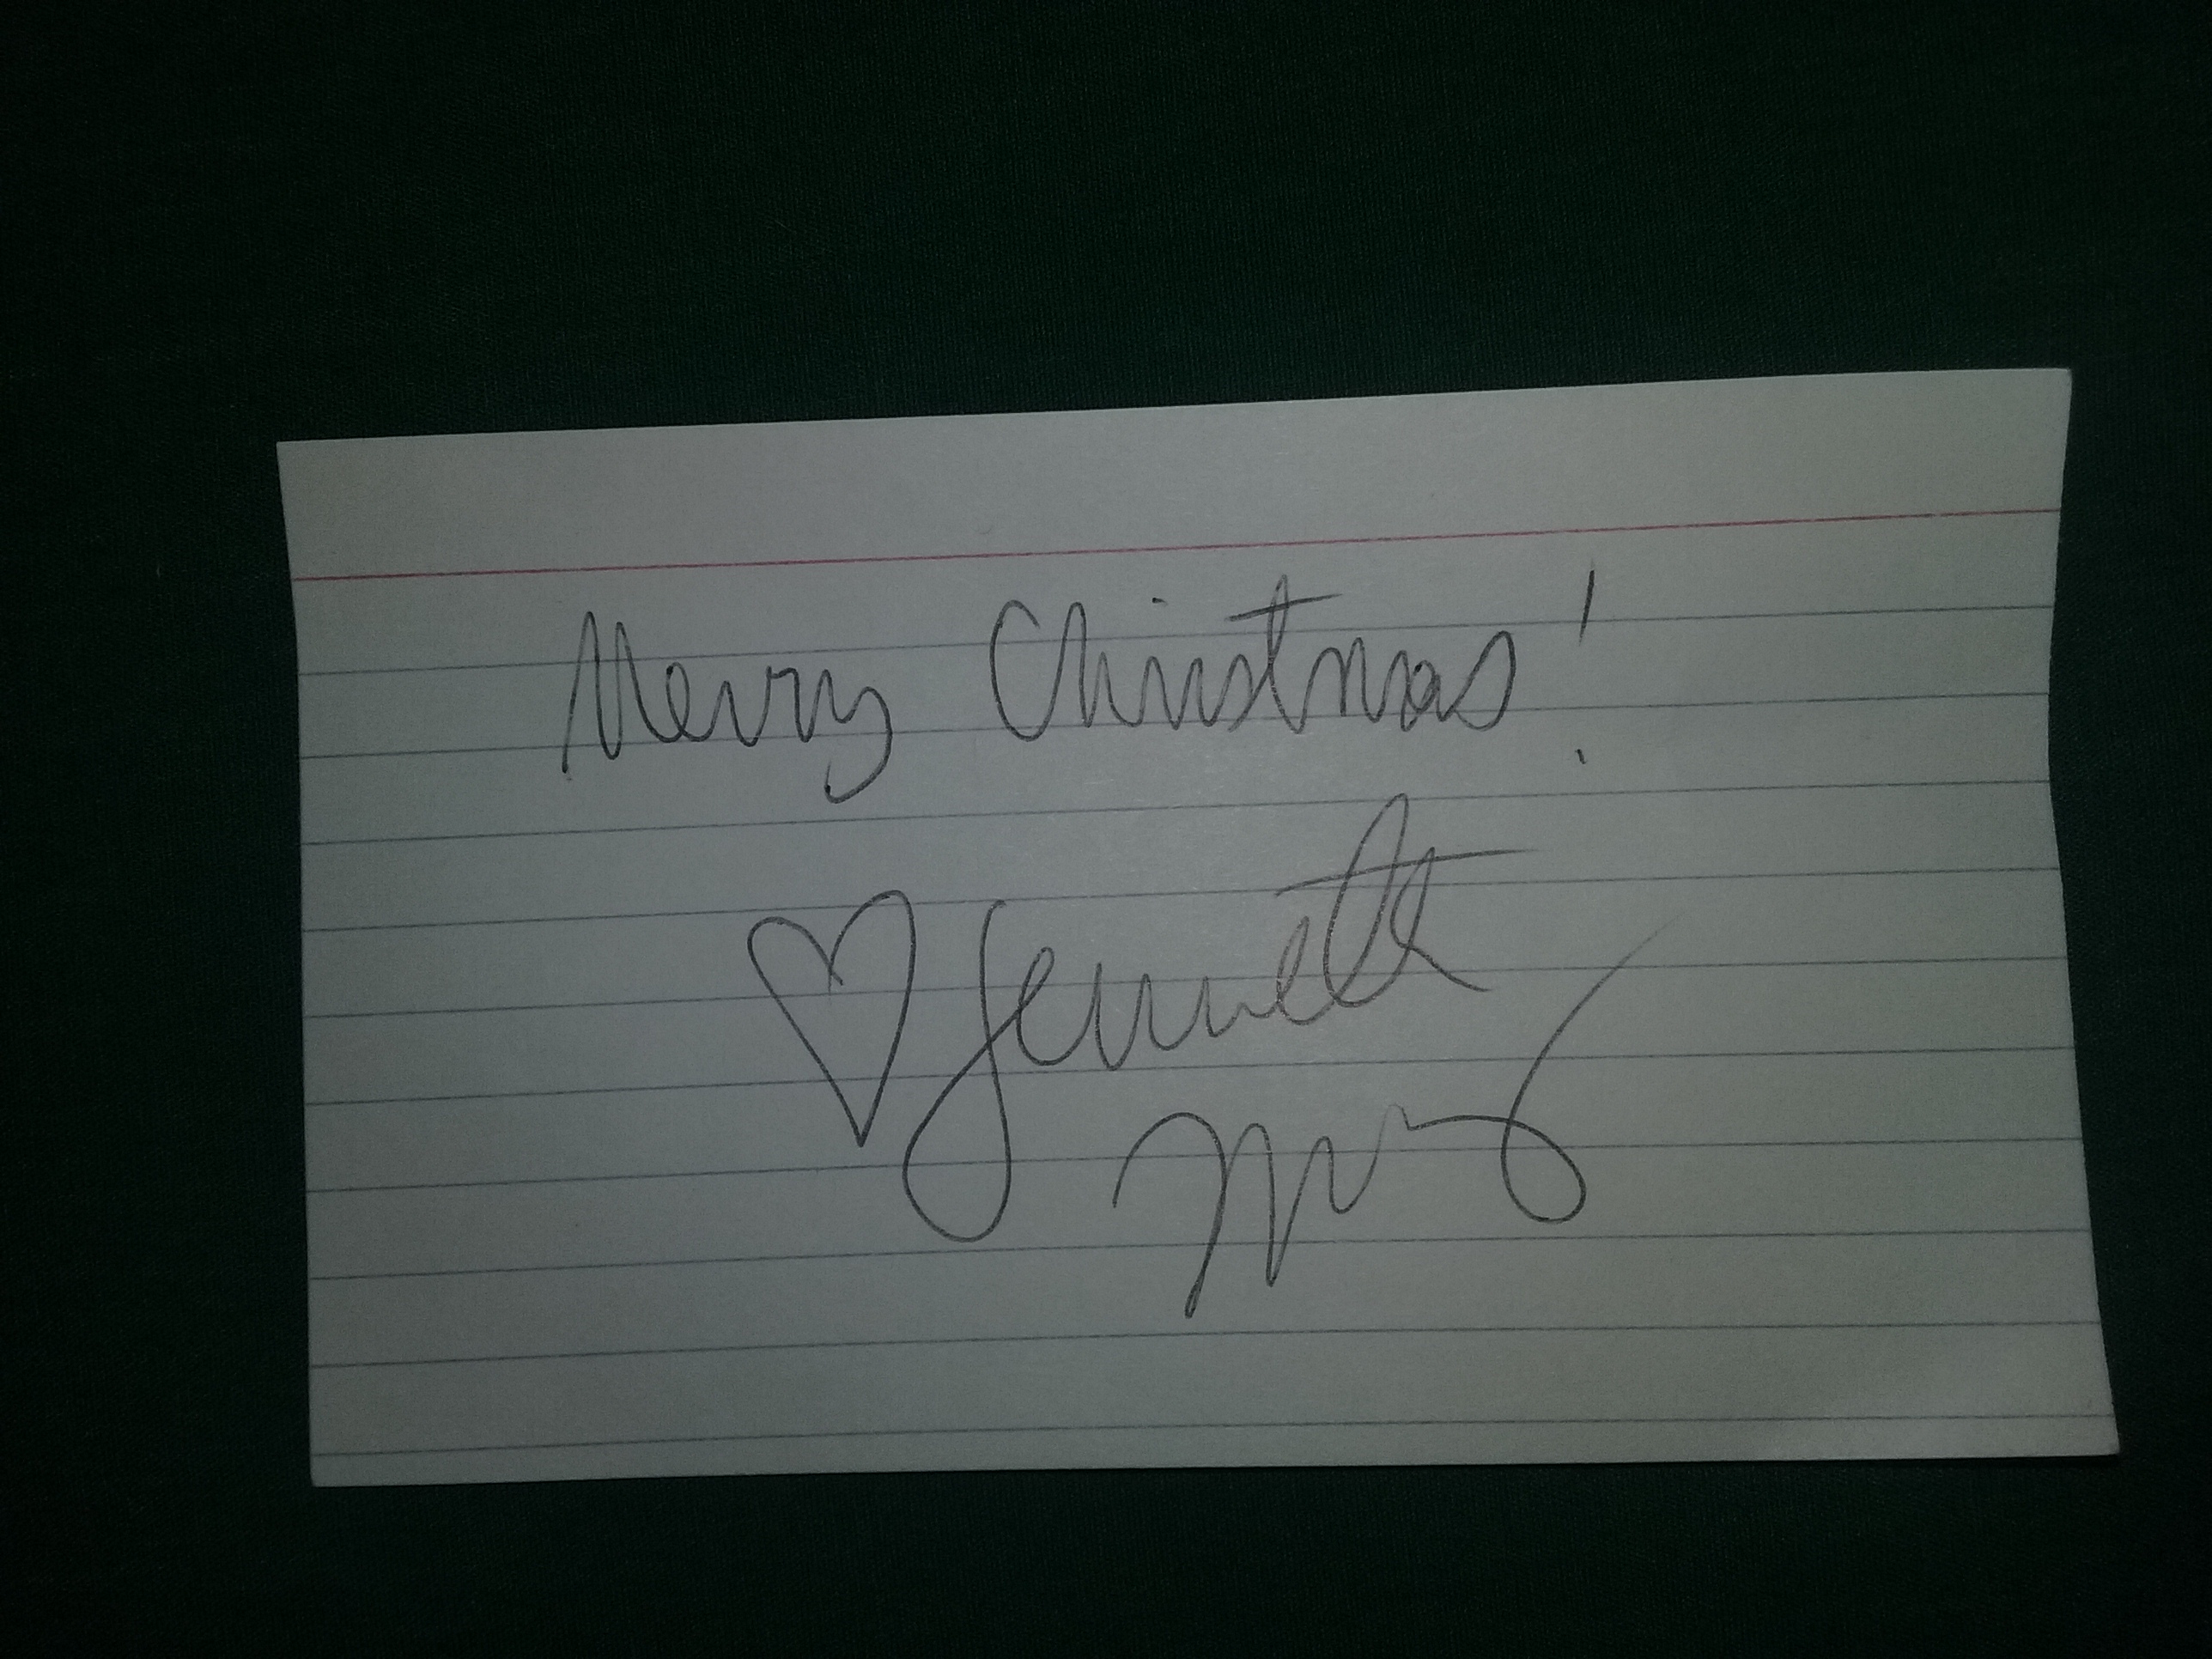 Merry Christmas!
Jennette